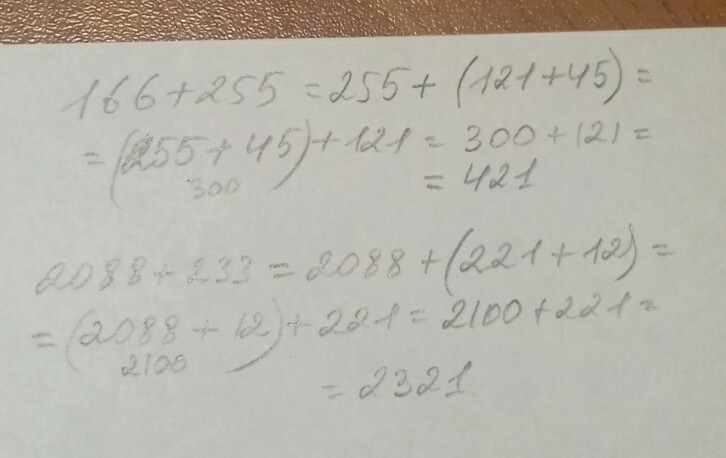 166+255 = 255 + (121+45) =
= (255 + 45) + 121 = 300 + 121 =
300
= 421
2088 + 233 = 2088 + (221 + 12) =
= (2088 + 12) + 221 = 2100 + 221 =
2100
= 2321